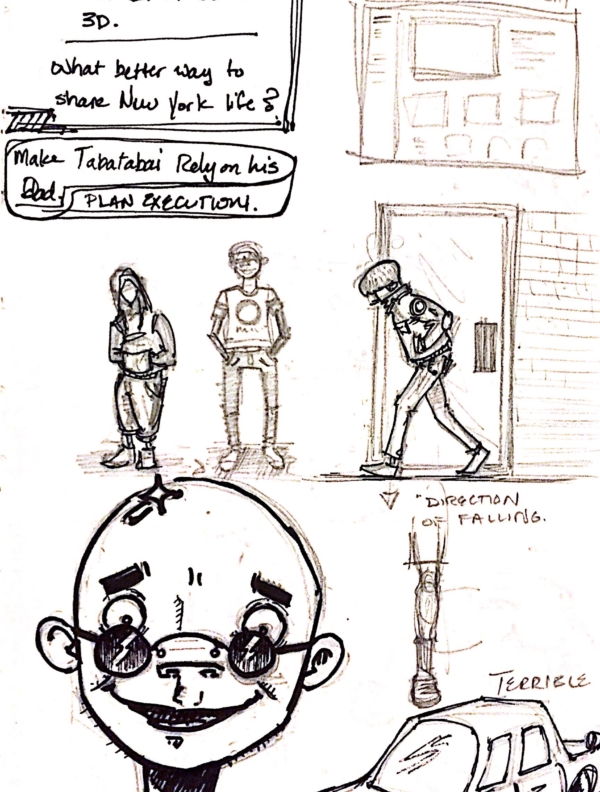 3D.
What better way to
share New York life?
Make Tabatabai Rely on his
Dad.
PLAN EXECUTION.
"DIRECTION
OF FALLING.
TERRIBLE